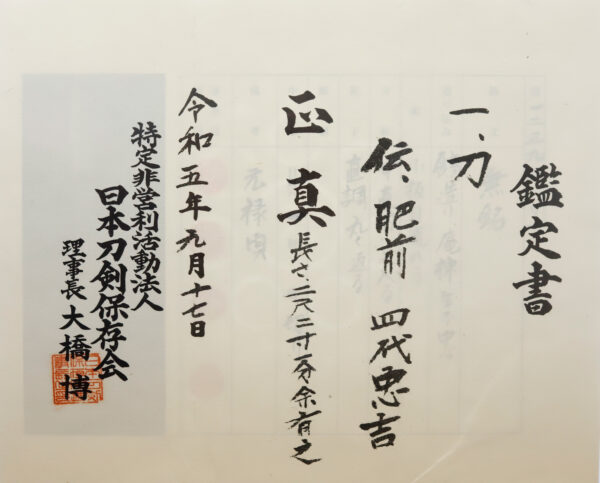 鑑定書
一、刀
伝 肥前 四代忠吉
正真 長さ、二尺二寸一分余有之
令和五年九月十七日
特定非営利活動法人
日本刀剣保存会
理事長 大橋 博